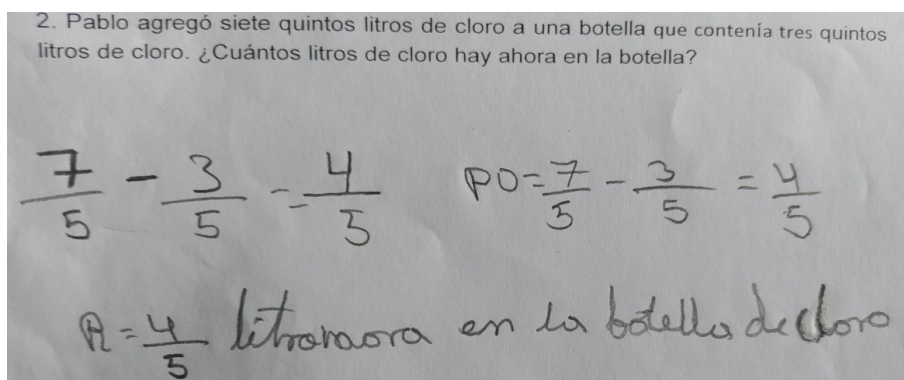 2. Pablo agregó siete quintos litros de cloro a una botella que contenía tres quintos
litros de cloro. ¿Cuántos litros de cloro hay ahora en la botella?
7/5 - 3/5 = 4/5 PO = 7/5 - 3/5 = 4/5
R = 4/5 en la botella de cloro